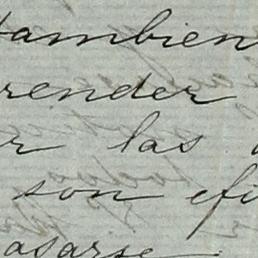 tambien
render
r las
son efi
asarse